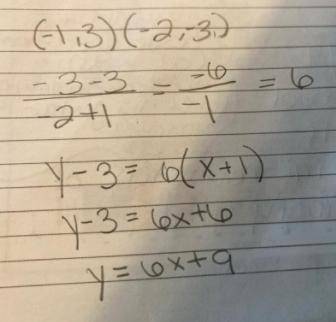 (-1,3)(-2,-3)
-3-3/-2+1 = -6/-1 = 6
y-3 = 6(x+1)
y-3 = 6x+6
y = 6x+9